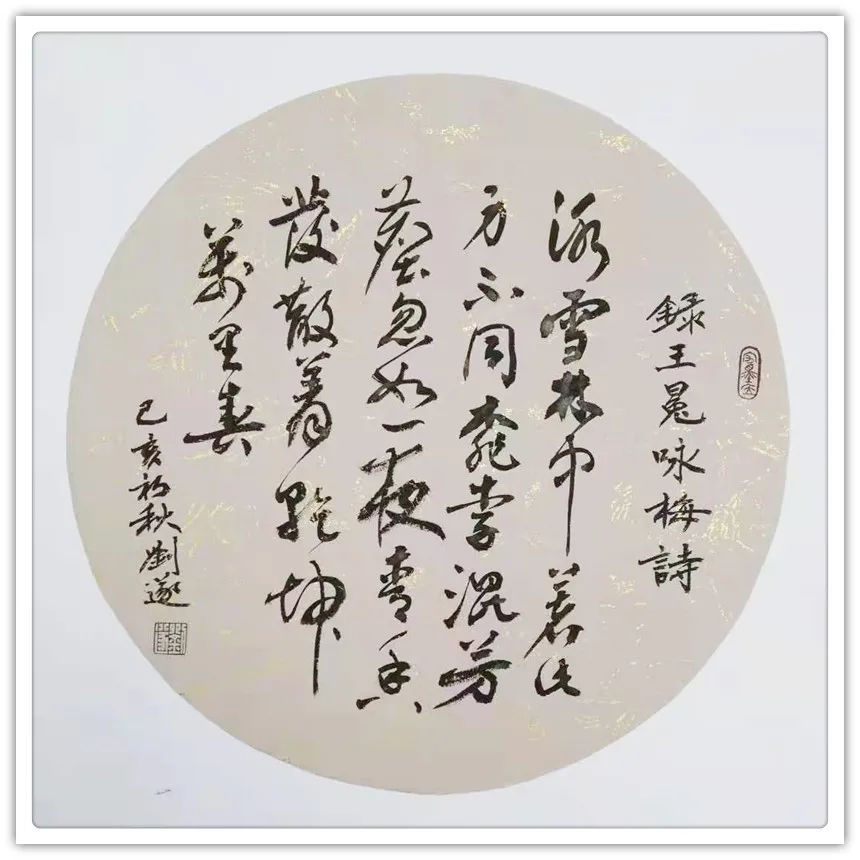 錄王冕咏梅詩
冰雪林中著此
身不同桃李混芳
塵忽如一夜青香
發散着乾坤
萬里春
己亥初秋劉遂